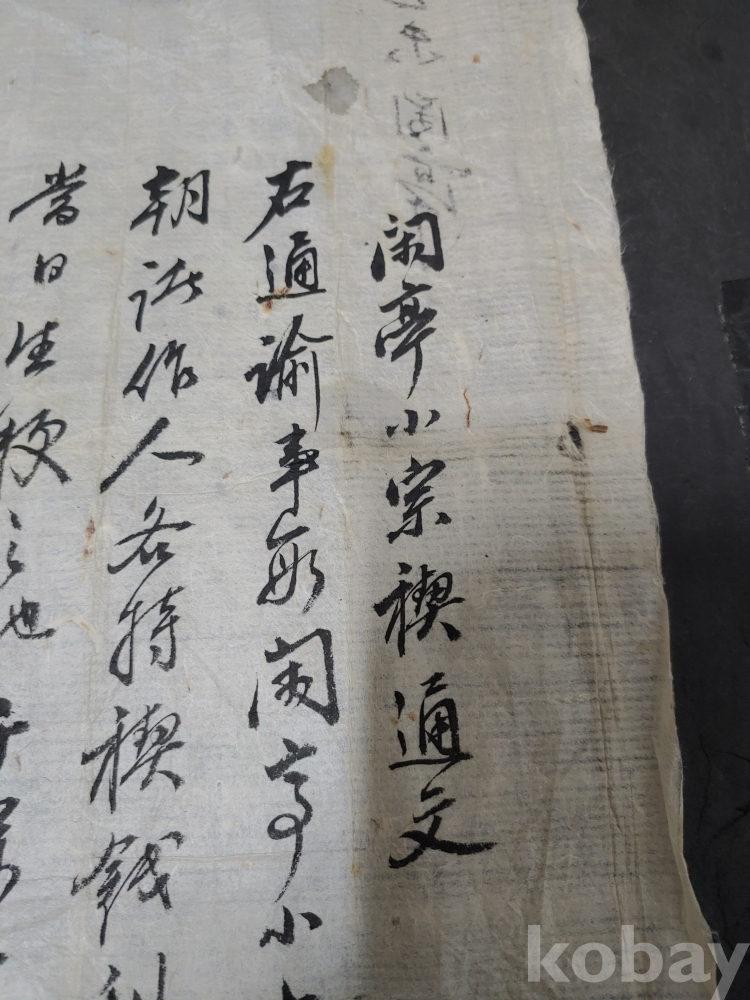 閑亭小宗稧通文
右通諭事段閑亭小
朝訪作人各持稧錢利
當日生梗之也
kobay